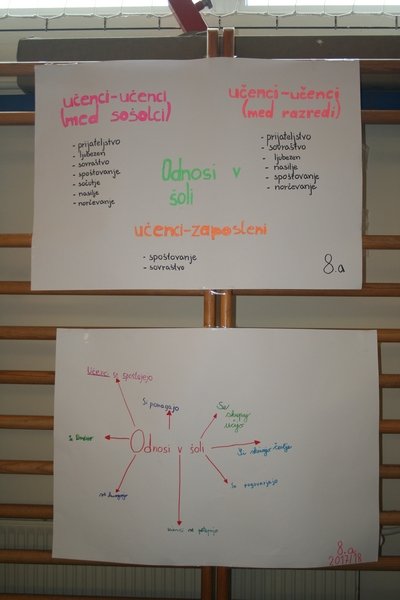 učenci-učenci
(med sošolci)
- prijateljstvo
- ljubezen
- sovraštvo
- spoštovanje
- sočutje
- nasilje
- norčevanje
učenci-učenci
(med razredi)
- prijateljstvo
- sovraštvo
- ljubezen
- nasilje
- spoštovanje
- norčevanje
Odnosi v
šoli
učenci-zaposleni
- spoštovanje
- sovraštvo
8.a
Učenci se spoštujejo
Si pomagajo
Se
skupaj
učijo
Odnosi v šoli
Se pogovarjajo
8.a
2017/18